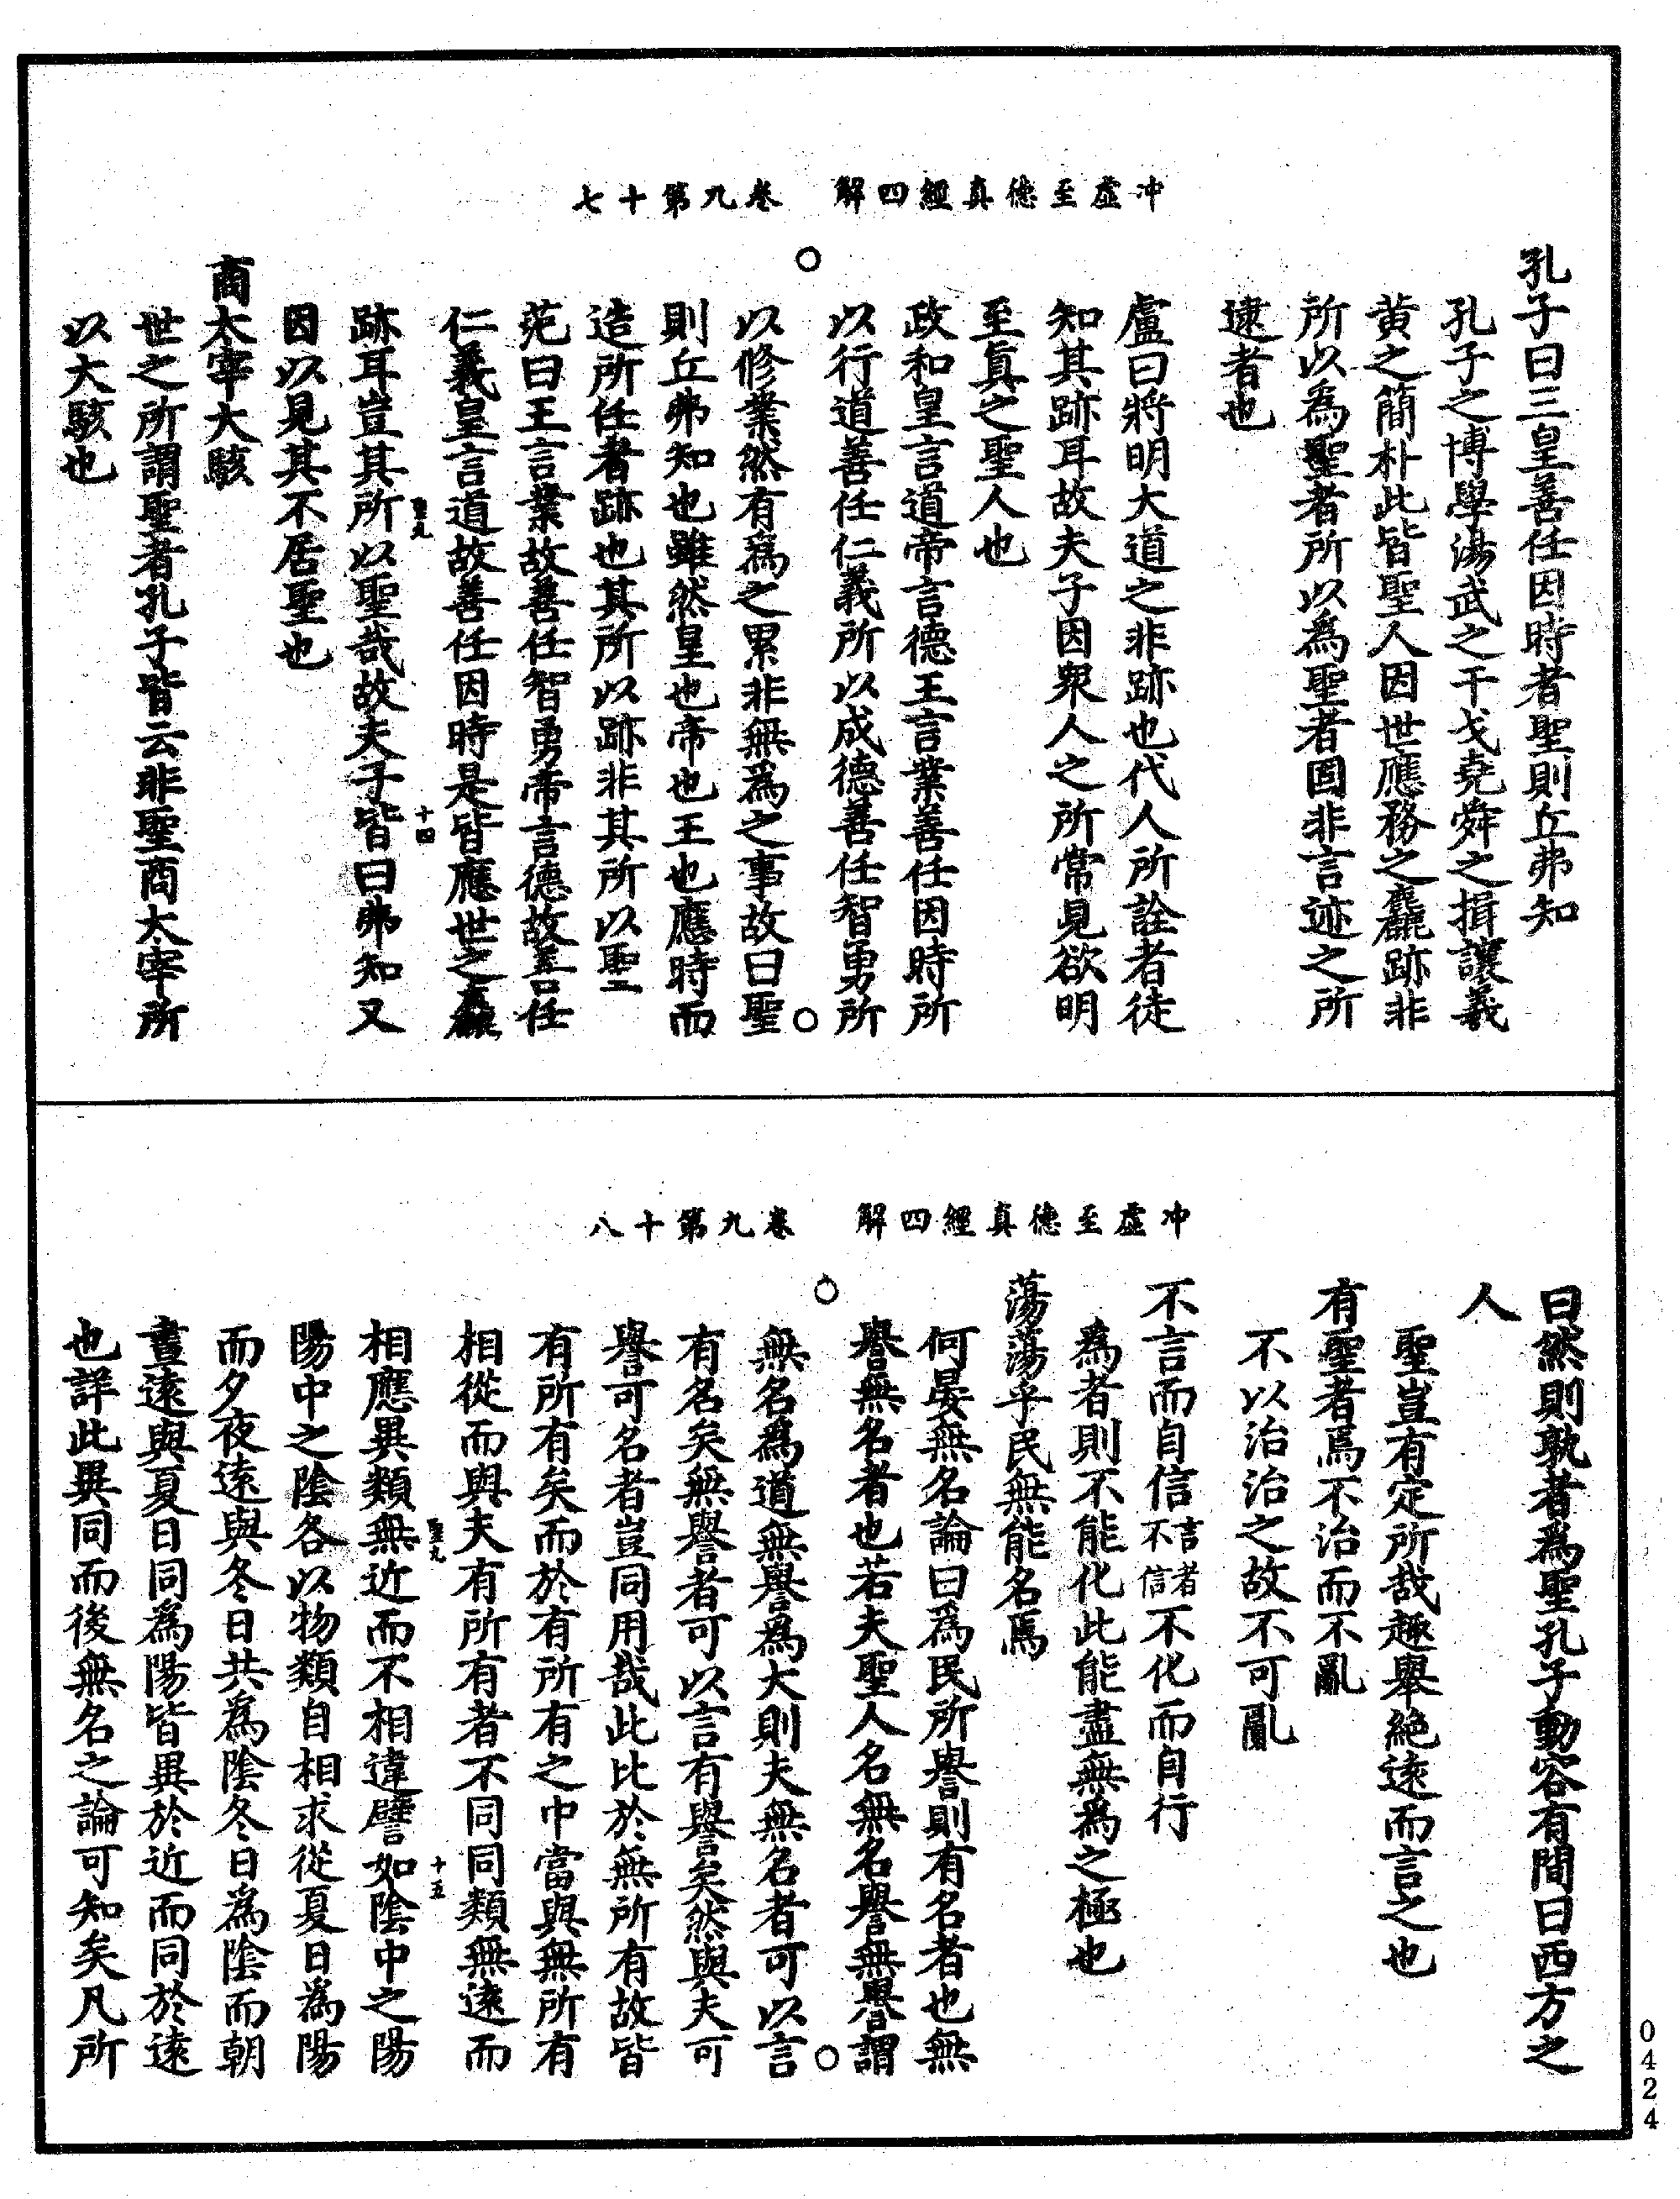 冲虛至德真經四解　卷九第十七
孔子曰三皇善任因時者聖則丘弗知
孔子之博學湯武之干戈堯舜之揖讓羲
黄之簡朴此皆聖人因世應務之麤跡非
所以為聖者所以為聖者固非言迹之所
逮者也
盧曰將明大道之非跡也代人所詮者徒
知其跡耳故夫子因衆人之所常見欲明
至真之聖人也
政和皇言道帝言德王言業善任因時所
以行道善任仁義所以成德善任智勇所
以修業然有為之累非無為之事故曰聖
則丘弗知也雖然皇也帝也王也應時而
造所任者跡也其所以跡非其所以聖
范曰王言業故善任智勇帝言德故善任
仁義皇言道故善任因時是皆應世之麤
跡耳豈其所以聖哉故夫子皆曰弗知又
因以見其不居聖也
聖九
十四
商太宰大駭
世之所謂聖者孔子皆云非聖商大宰所
以大駭也
冲虛至德真經四解　卷九第十八
曰然則孰者為聖孔子動容有間曰西方之
人
聖豈有定所哉趣舉絶遠而言之也
有聖者焉不治而不亂
不以治治之故不可亂
不言而自信言者不信不化而自行
為者則不能化此能盡無為之極也
蕩蕩乎民無能名焉
何晏無名論曰為民所譽則有名者也無
譽無名者也若夫聖人名無名譽無譽謂
無名為道無譽為大則夫無名者可以言
有名矣無譽者可以言有譽矣然與夫可
譽可名者豈同用哉此比於無所有故皆
有所有矣而於有所有之中當與無所有
相從而與夫有所有者不同同類無遠而
相應異類無近而不相違譬如陰中之陽
聖九
十五
陽中之陰各以物類自相求從夏日為陽
而夕夜遠與冬日共為陰冬日為陰而朝
晝遠與夏日同為陽皆異於近而同於遠
也詳此異同而後無名之論可知矣凡所
0424